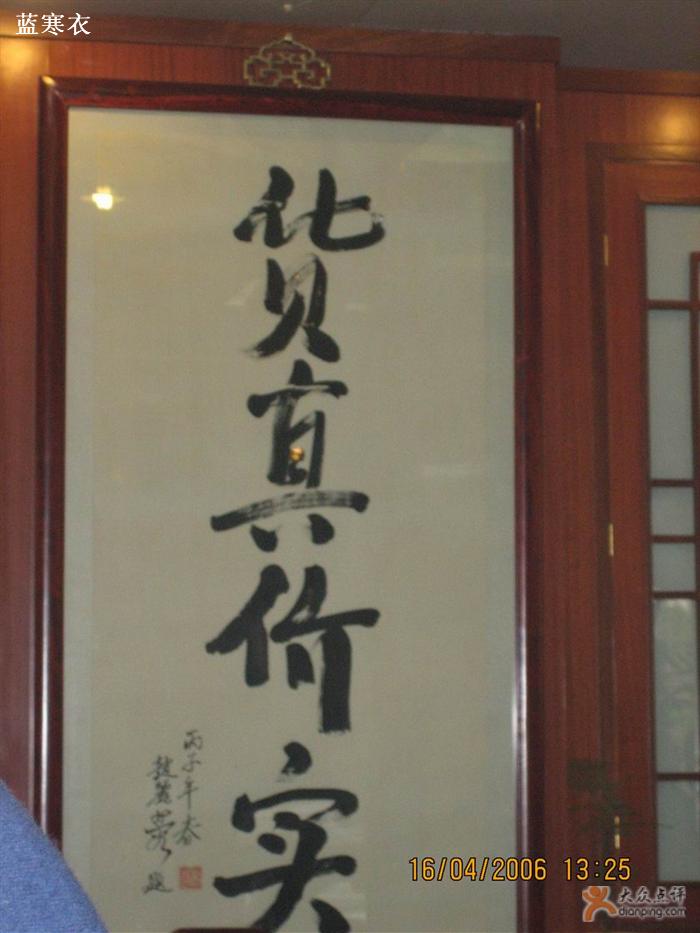 蓝寒衣
货真价实
丙子年春
题
16/04/2006 13:25
大众点评
dianping.com